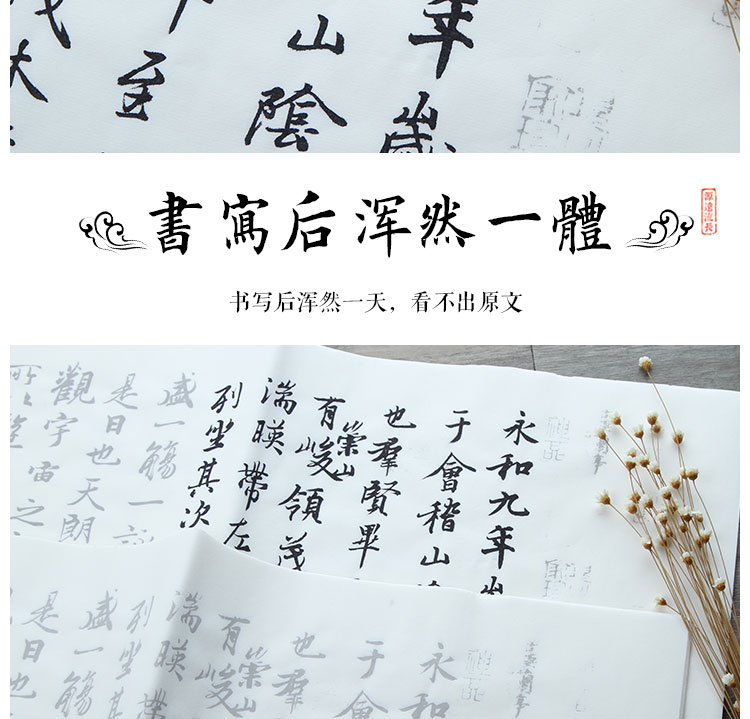 年
山陰
至
書寫后浑然一體
源遠流長
书写后浑然一天，看不出原文
永和九年
于會稽山
也羣賢畢
有崇山峻領茂
湍暎帶左
列坐其次
盛一觴一詠
是日也天朗
觀宇宙之
永和
于會
也羣
有崇山峻
湍暎
列坐其
盛一觴
是日也